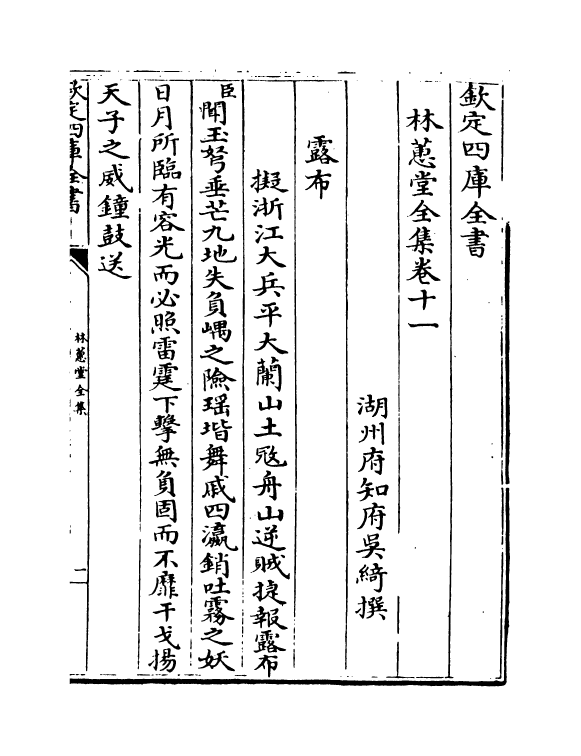 欽定四庫全書
林蕙堂全集卷十一
湖州府知府吳綺撰
露布
擬浙江大兵平大蘭山土宼舟山逆賊捷報露布
臣聞玉弩垂芒九地失負嵎之險瑶堦舞戚四瀛銷吐霧之妖
日月所臨有容光而必照雷霆下擊無負固而不靡干戈揚
天子之威鐘鼓送
欽定四庫全書
林蕙堂全集
二